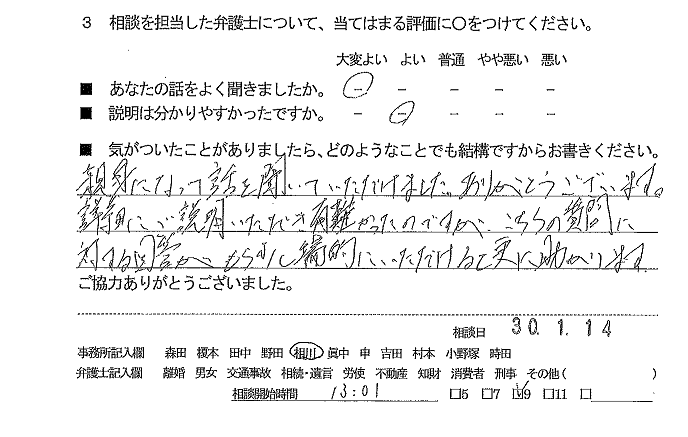 3 相談を担当した弁護士について、当てはまる評価に○をつけてください。
大変よい よい 普通 やや悪い 悪い
■ あなたの話をよく聞きましたか。 － － － － －
■ 説明は分かりやすかったですか。 － － － － －
■ 気がついたことがありましたら、どのようなことでも結構ですからお書きください。
親身になって話を聞いていただけました。ありがとうございます。
詳細にご説明いただき有難かったのですが、こちらの質問に
対する回答が、もう少し端的にいただけると更に助かります
ご協力ありがとうございました。
相談日 30.1.14
事務所記入欄 森田 榎本 田中 野田 相川 眞中 申 吉田 村本 小野塚 時田
弁護士記入欄 離婚 男女 交通事故 相続・遺言 労使 不動産 知財 消費者 刑事 その他( )
相談開始時間 13:01 □5 □7 ☑9 □11 □